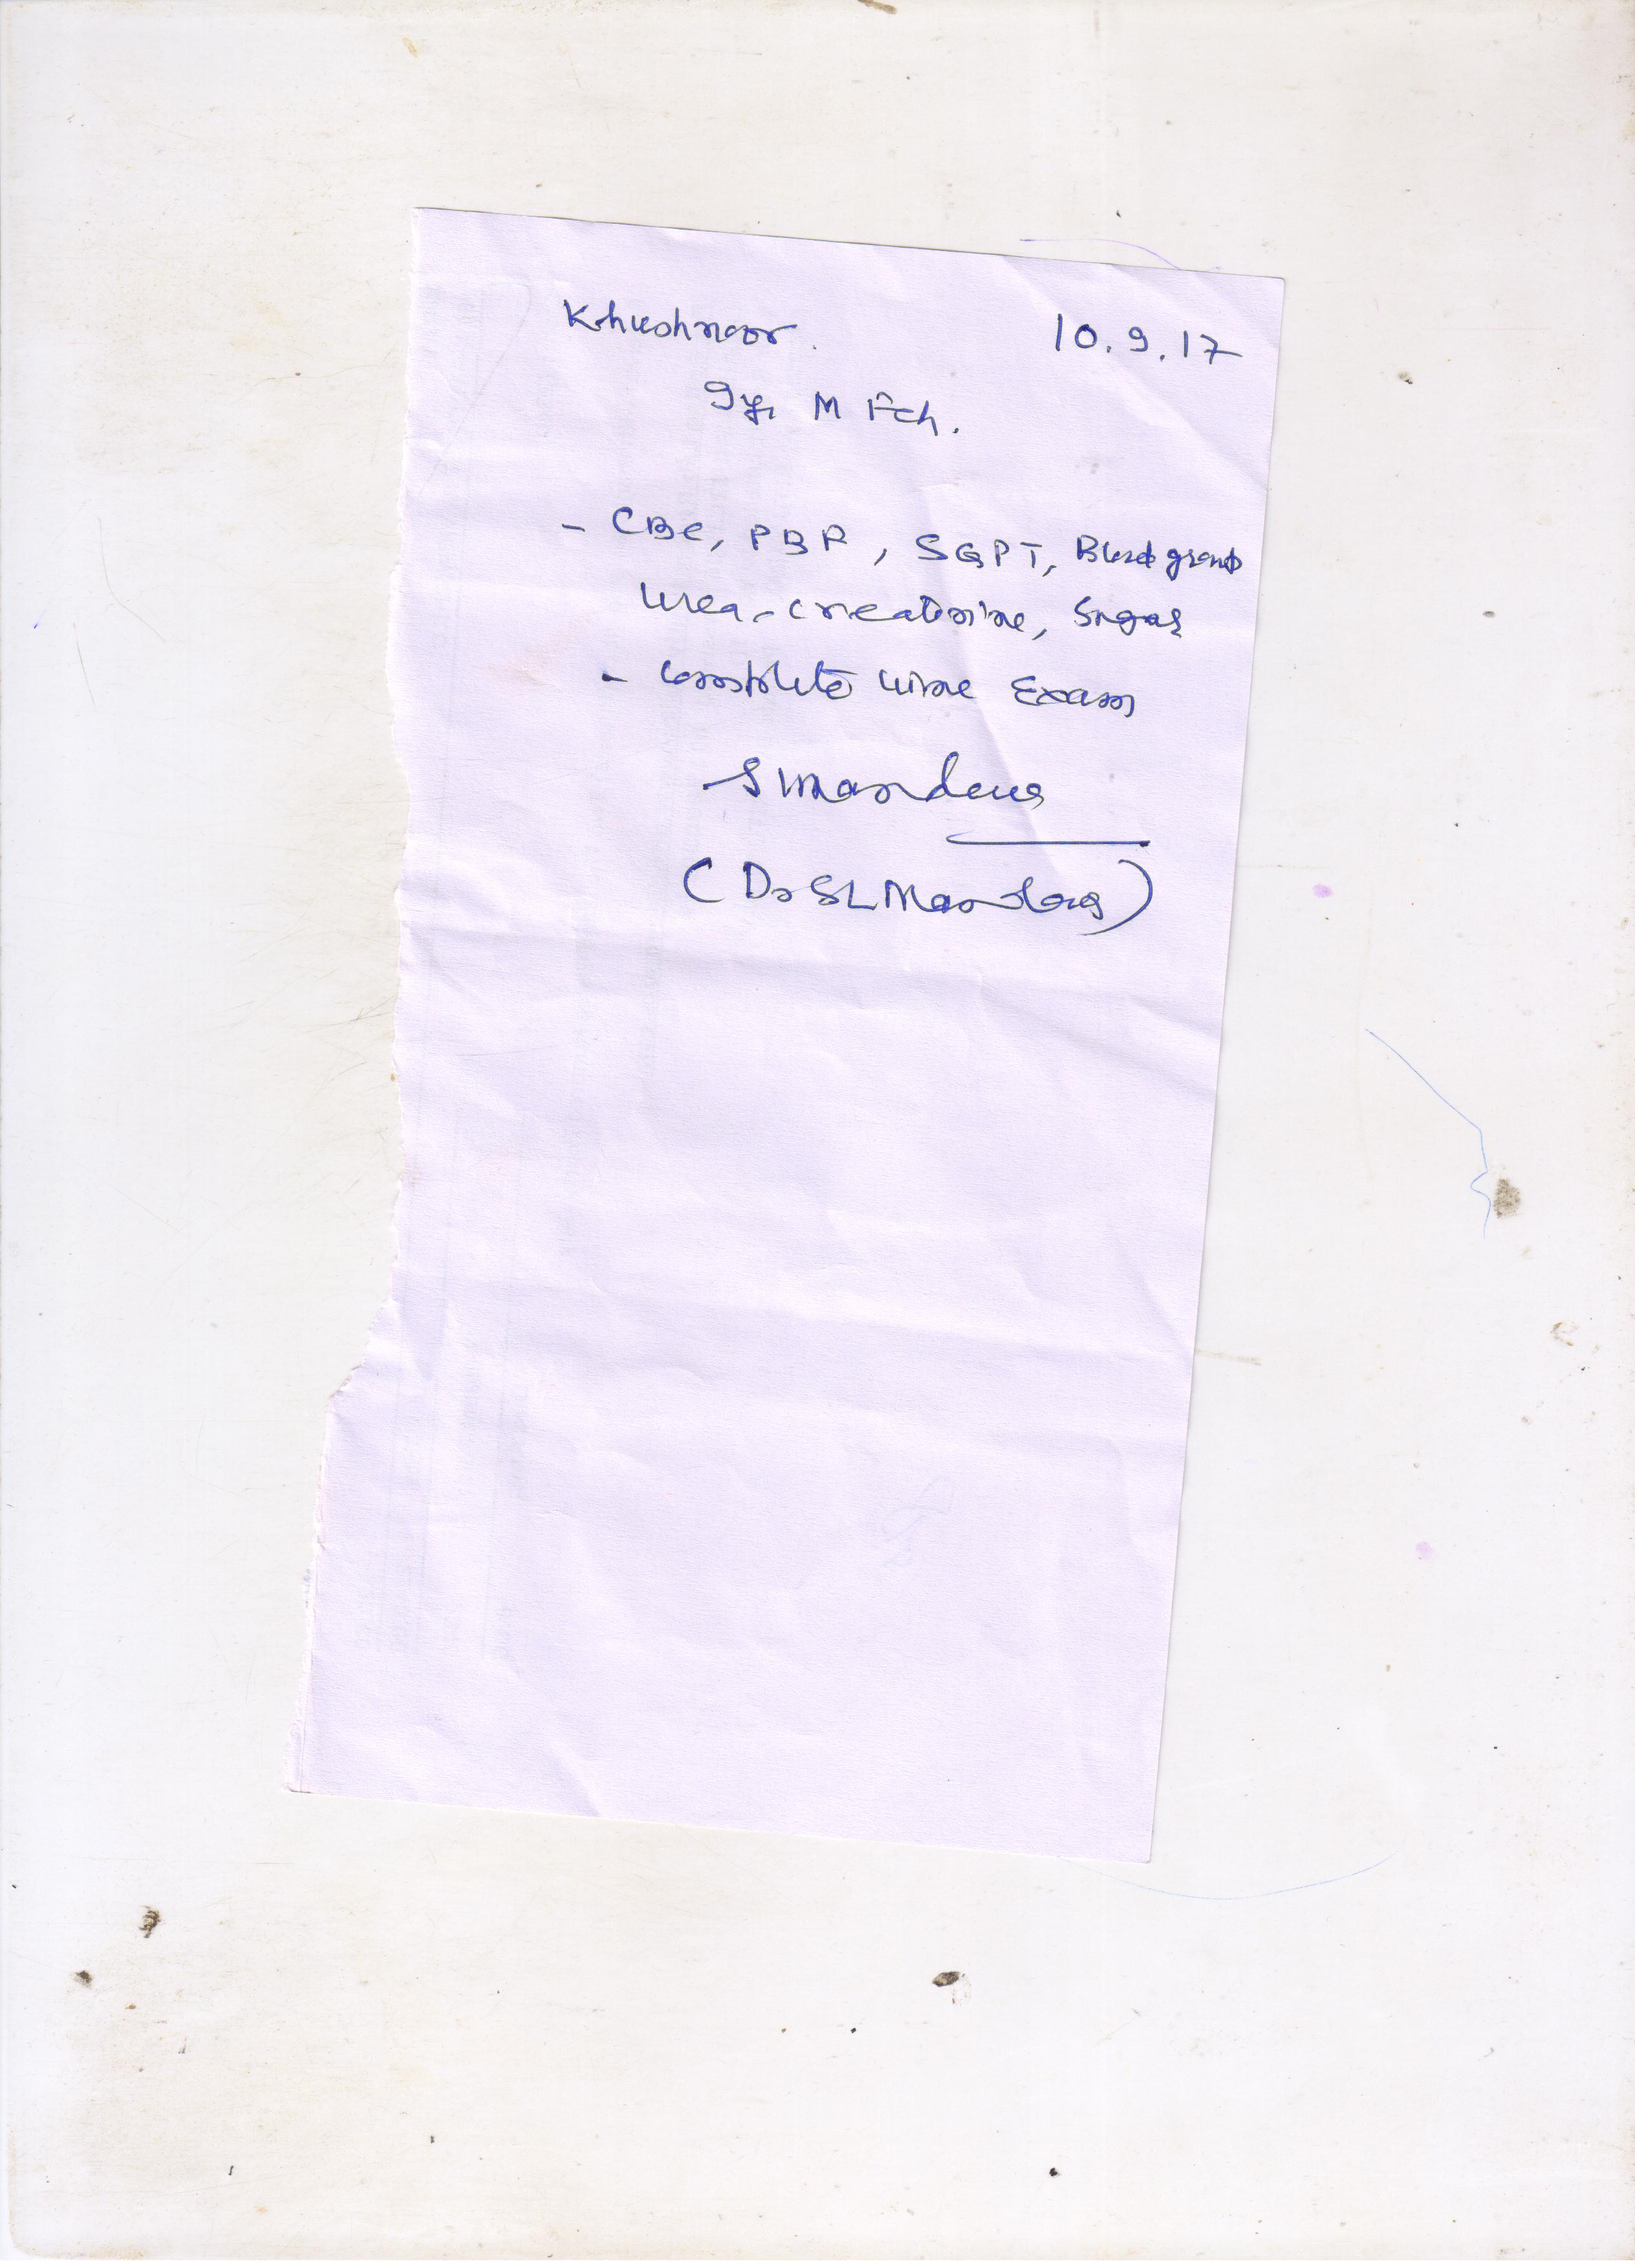 Khushnoor. 10.9.17
9y, M Fch.
- CBC, PBF, SGPT, Blood group
Urea-creatinine, Sugar
- Complete Urine Exam
(Dr SL Mandawg)